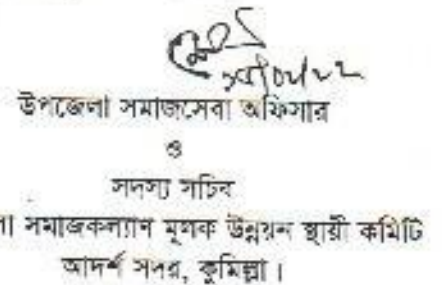 উপজেলা সমাজসেবা অফিসার
ও
সদস্য সচিব
সমাজকল্যাণ মূলক উন্নয়ন স্থায়ী কমিটি
আদর্শ সদর, কুমিল্লা।